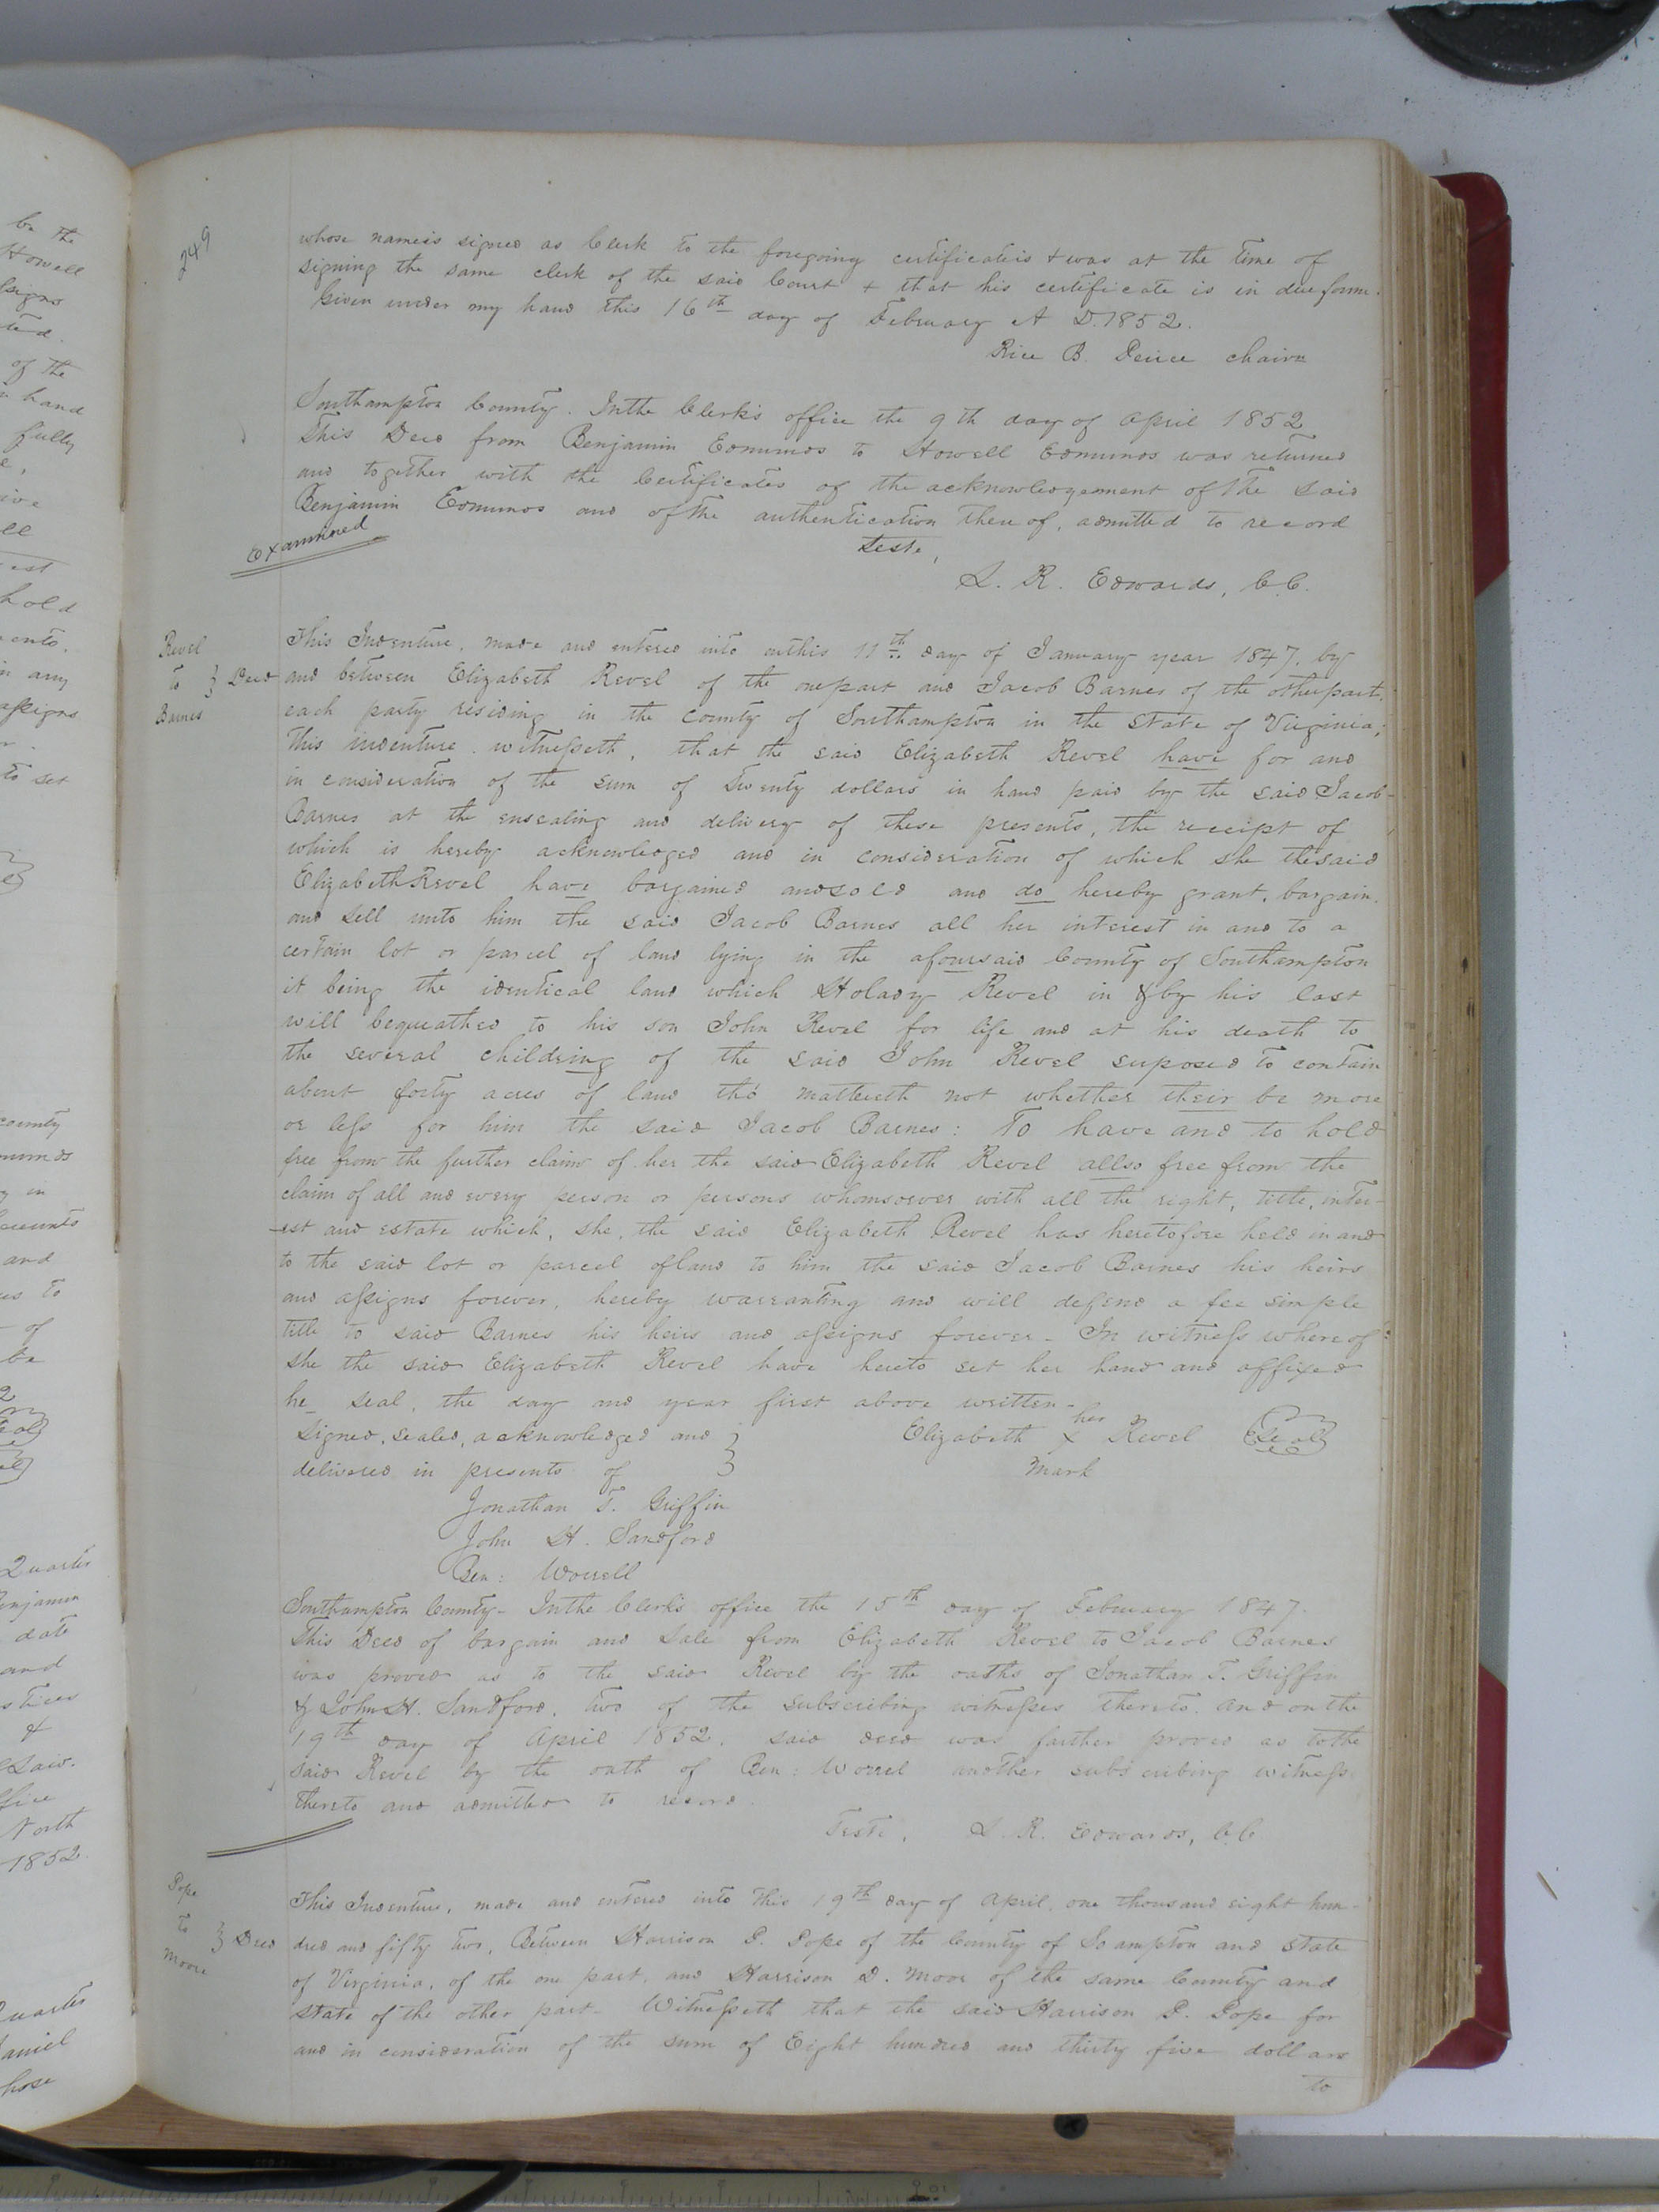 249
whose nameis signed as Clerk to the foregoing certificateis & was at the time of
signing the same clerk of the said Court & that his certificate is in dueform.
Given under my hand this 16th day of February A D. 1852.
Rice B. chairn
Southampton County. Inthe Clerk's office the 9th day of April 1852
This Deed from Benjamin Edmunds to Howell Edmunds was returned
and together with the Certificates of the acknowledgement of the said
Benjamin Edmunds and ofthe authentication there of, admitted to record
Examined
Teste,
L. R. Edwards, C.C.
Revel
to } Deed
Barnes
This Indenture, made and entered into onthis 11th day of January year 1847, by
and between Elizabeth Revel of the onepart and Jacob Barnes of the otherpart,
each party residing in the county of Southampton in the State of Virginia;
This indenture witnesseth, that the said Elizabeth Revel have for and
in consideration of the sum of Twenty dollars in hand paid by the said Jacob-
Barnes at the ensealing and delivery of these presents, the receipt of
which is hereby acknowledged and in consideration of which she thesaid
Elizabeth Revel have bargained andsold and do hereby grant, bargain,
and sell unto him the said Jacob Barnes all her interest in and to a
certain lot or parcel of land lying in the afoursaid County of Southampton
it being the identical land which Holady Revel in & by his last
will bequeathed to his son John Revel for life and at his death to
the several childring of the said John Revel suposed to contain
about forty acres of land tho' mattereth not whether their be more
or less for him the said Jacob Barnes: To have and to hold
free from the further claim of her the said Elizabeth Revel allso free from the
claim of all and every person or persons whomsoever with all the right, title, inter-
-est and estate which, she, the said Elizabeth Revel has heretofore held in and
to the said lot or parcel ofland to him the said Jacob Barnes his heirs
and assigns forever, hereby warranting and will defend a fee simple
title to said Barnes his heirs and assigns forever - In witness whereof
she the said Elizabeth Revel have hereto set her hand and affixed
he_ seal, the day and year first above written-
Signed, sealed, acknowledged and }
delivered in presents of }
Elizabeth her x mark Revel Seal
Jonathan T. Griffin
John H. Sandford
Ben: Worrell
Southampton County- Inthe Clerk's office the 15th day of February 1847.
This Deed of bargain and sale from Elizabeth Revel to Jacob Barnes
was proved as to the said Revel by the oaths of Jonathan T. Griffin
& John H. Sandford, two of the subscribing witnesses thereto. and on the
19th day of April 1852, said deed was farther proved as tothe
said Revel by the oath of Ben: Worrel another subscribing witness
thereto and admitted to record.
Teste, L. R. Edwards, C.C.
Pope
to } Deed
Moore
This Indenture, made and entered into this 19th day of April, one thousand eight hun-
dred and fifty two, Between Harrison P. Pope of the County of So ampton and State
of Virginia, of the one part, and Harrison D. Moor of the same County and
State of the other part- Witnesseth that the said Harrison P. Pope for
and in consideration of the sum of Eight hundred and thirty five dollars
to